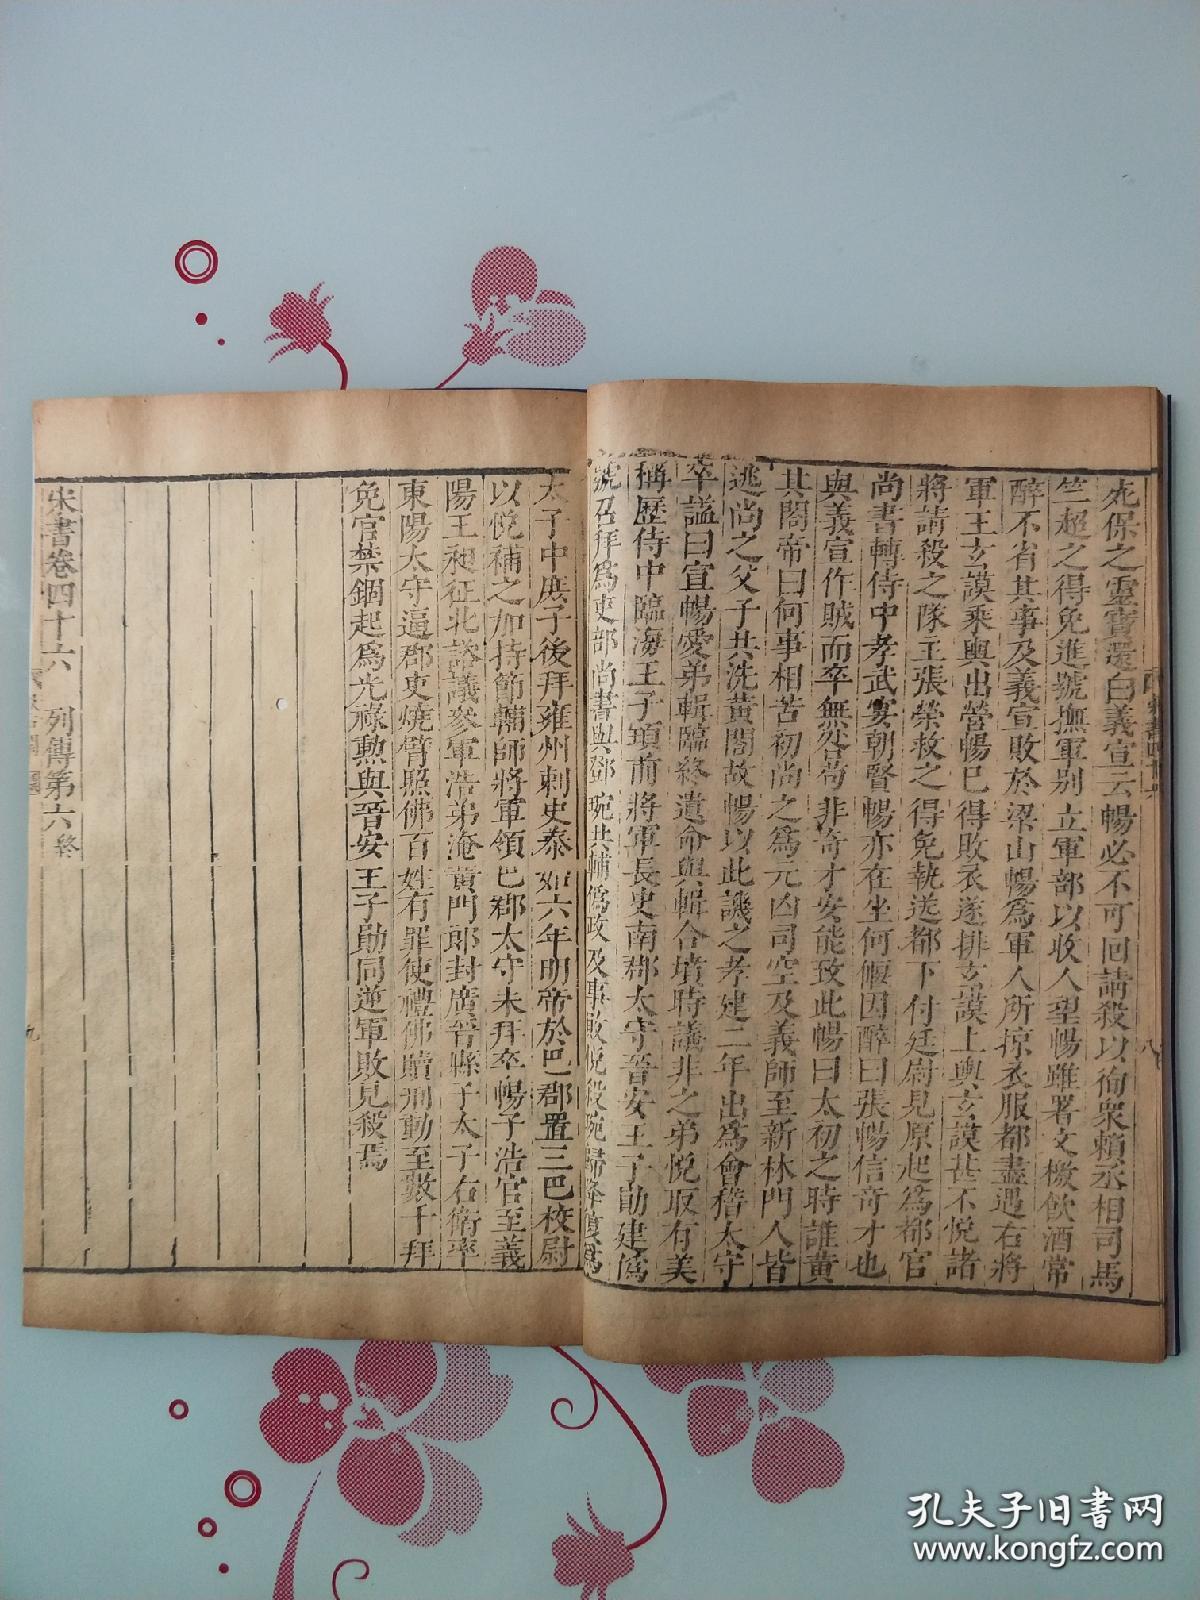 尤保之靈寶還白義宣云暢必不可回請殺以徇衆賴丞相司馬
竺超之得免進號撫軍别立軍部以收人望暢雖署文檄飲酒常
醉不省其事及義宣敗於梁山暢為軍人所掠衣服都盡遇右將
軍王玄謨乘輿出營暢已得敗衣遂排玄謨上輿玄謨甚不悅諸
將請殺之隊主張榮救之得免執送都下付廷尉見原起爲都官
尚書轉侍中孝武宴朝賢暢亦在坐何偃因醉曰張暢信奇才也
與義宣作賊而卒無咎苟非奇才安能致此暢曰太初之時誰黄
其閤帝曰何事相苦初尚之爲元凶司空及義師至新林門人皆
逃尚之父子共洗黄閤故暢以此譏之孝建二年出爲會稽太守
卒謚曰宣暢愛弟輯臨終遺命與輯合墳時議非之弟悅取有美
稱歷侍中臨海王子頊前將軍長史南郡太守晉安王子勛建僞
號召拜爲吏部尚書與鄧琬共輔僞政及事敗悅殺琬歸降復爲
太子中庶子後拜雍州刺史泰如六年明帝於巴郡置三巴校尉
以悅補之加持節輔師將軍領巴郡太守未拜卒暢子浩官至義
陽王昶征北諮議參軍浩弟淹黄門郎封廣晉縣子太子右衛率
東陽太守逼郡吏燒臂照佛百姓有罪使禮佛贖刑動至數千拜
免官禁錮起爲光祿勲與晉安王子勛同逆軍敗見殺焉
宋書卷四十六 列傳第六終
八
九
孔夫子旧书网
www.kongfz.com